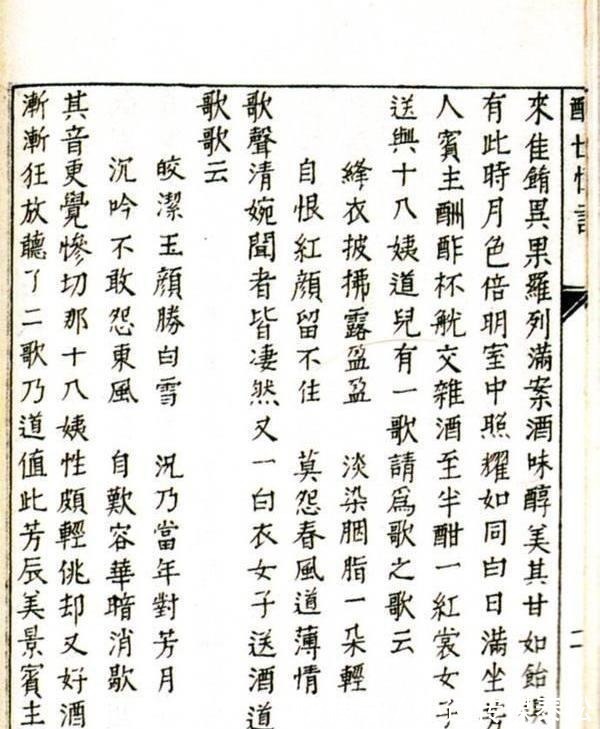 醒世恒言
二
來佳餚異果羅列滿案酒味醇美其甘如飴
有此時月色倍明室中照耀如同白日滿坐芳
人賓主酬酢杯觥交雜酒至半酣一紅裳女子
送與十八姨道兒有一歌請爲歌之歌云
絳衣披拂露盈盈 淡染胭脂一朵輕
自恨紅顏留不住 莫怨春風道薄情
歌聲清婉聞者皆凄然又一白衣女子送酒道
歌歌云
皎潔玉顏勝白雪 況乃當年對芳月
沉吟不敢怨東風 自歎容華暗消歇
其音更覺慘切那十八姨性頗輕佻却又好酒
漸漸狂放聽了二歌乃道值此芳辰美景賓主